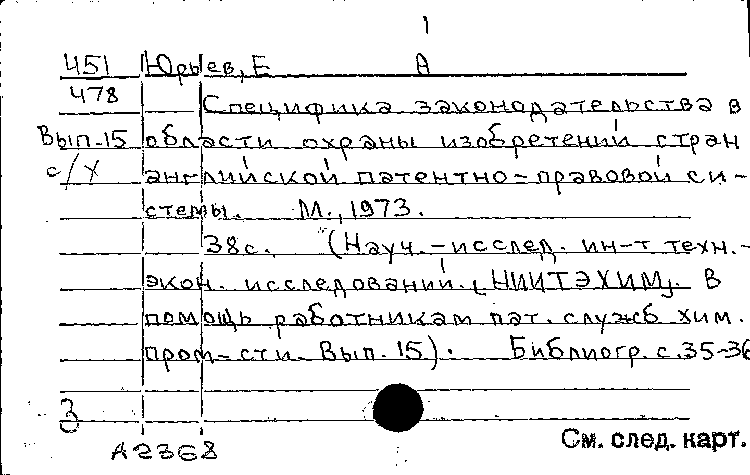 1
451 Юрьев, Е А
478 Специфика законодательства в
Вып.15 области охраны изобретений стран
с/х английской патентно-правовой си-
стемы. М., 1973.
38с. (Науч.-исслед. ин-т техн.-
экон. исследований. [НИИТЭХИМ]. В
помощь работникам пат. служб хим.
пром-сти. Вып. 15). Библиогр. с.35-36
3
А2368
См. след. карт.